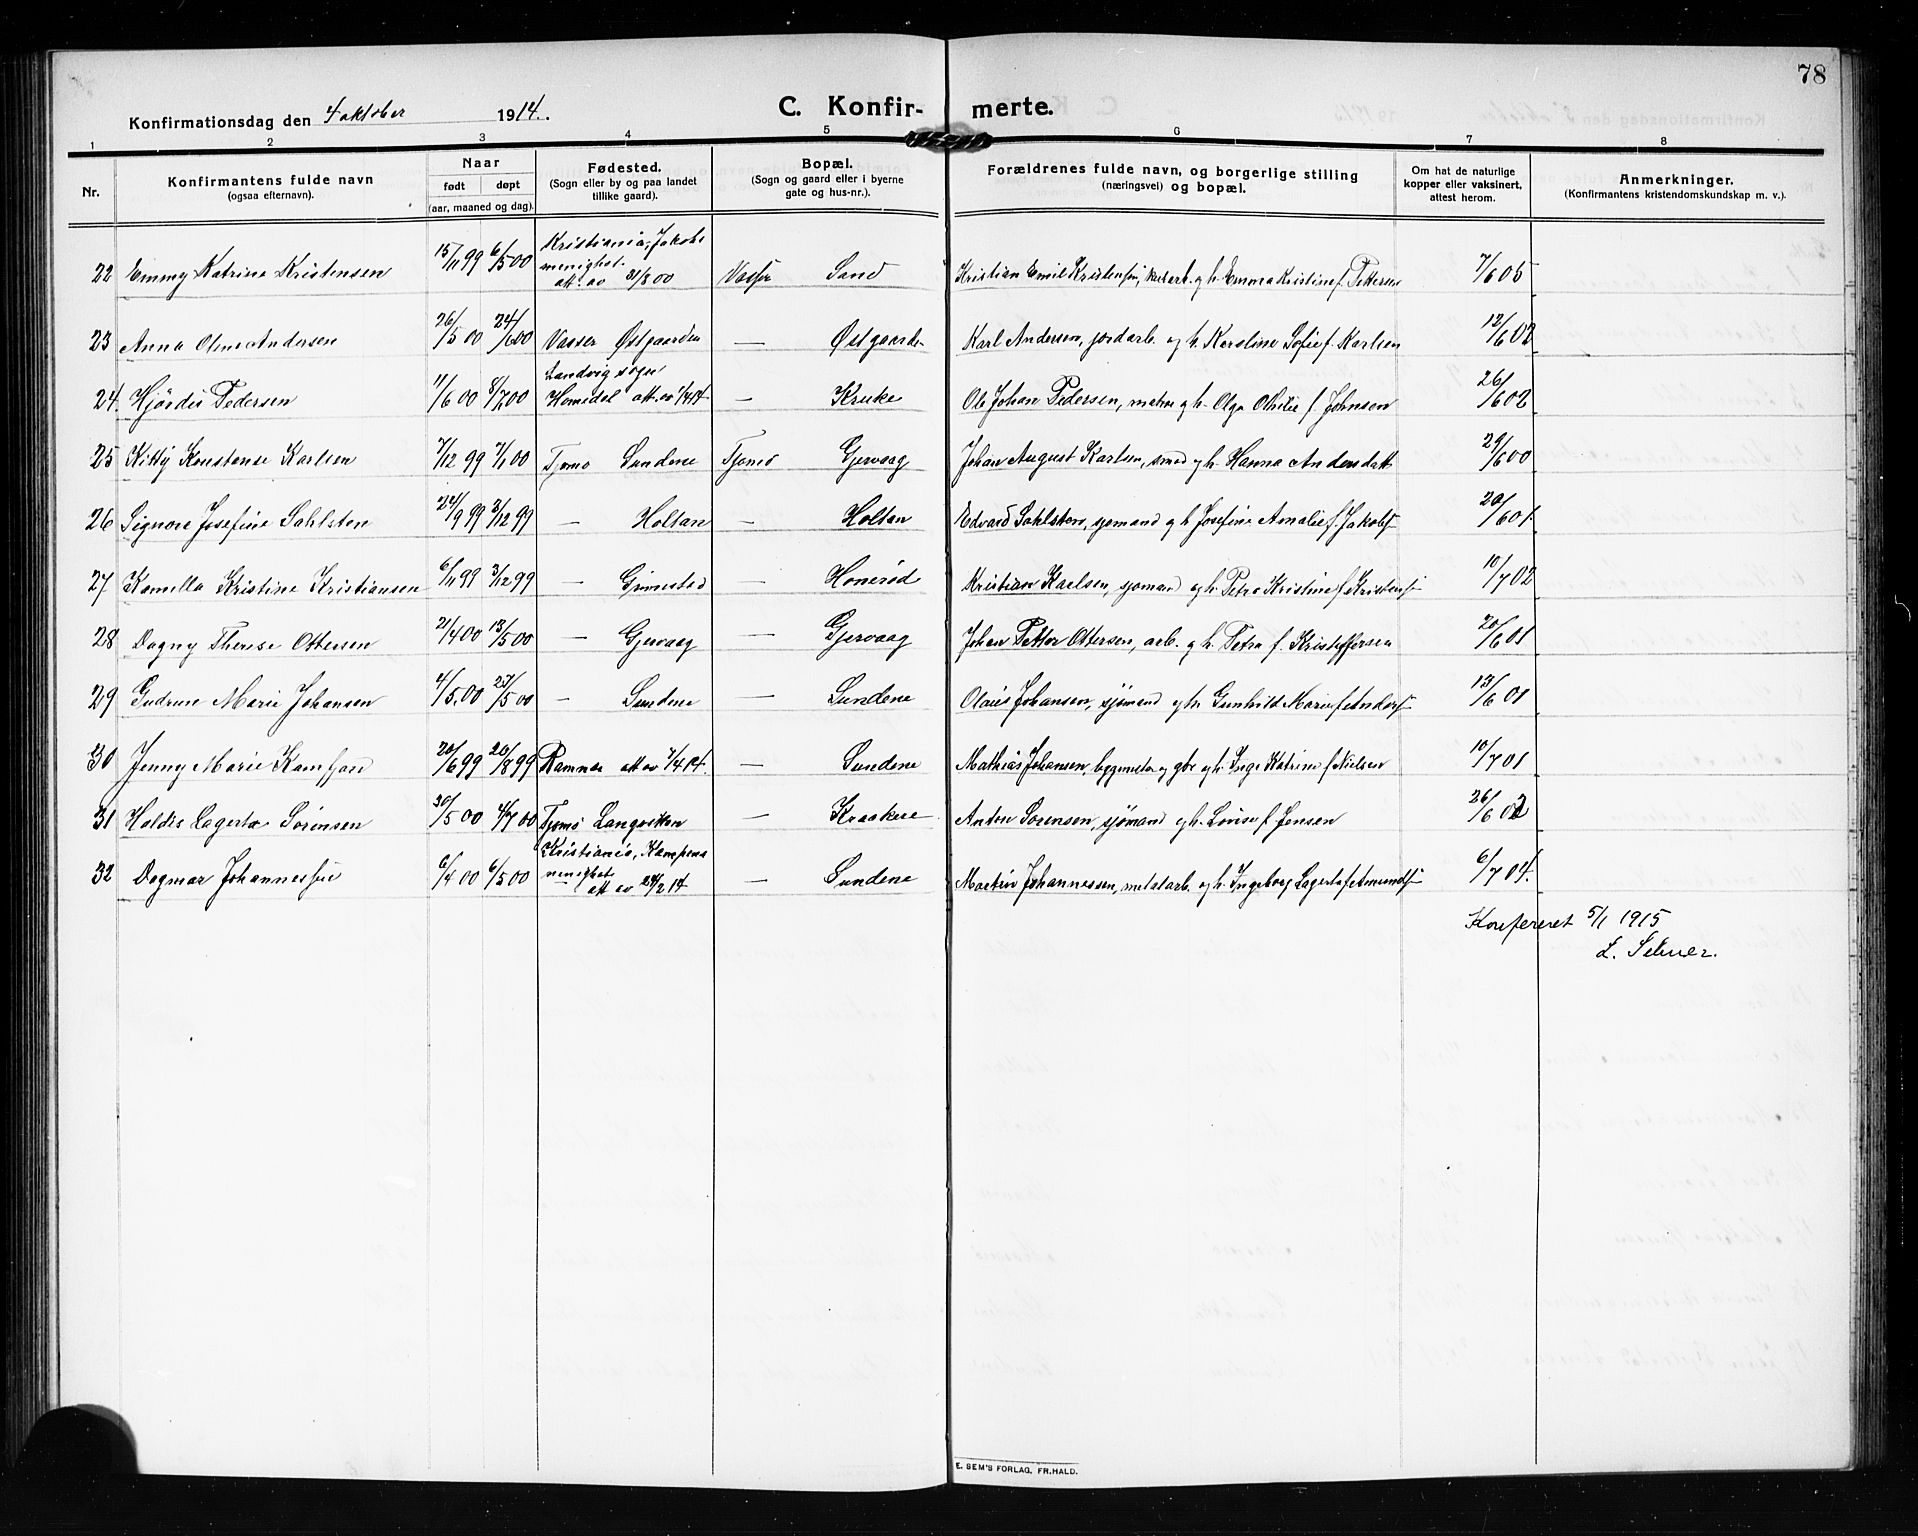 78
Konfirmationsdag den 4 oktober 1914.
C. Konfir- merte.
1 2 3 4 5 6 7 8
Nr.
Konfirmantens fulde navn
(ogsaa efternavn).
Naar
født døpt
(aar, maaned og dag).
Fødested.
(Sogn eller by og paa landet
tillike gaard).
Bopæl.
(Sogn og gaard eller i byerne
gate og hus-nr.).
Forældrenes fulde navn, og borgerlige stilling
(næringsvei) og bopæl.
Om hat de naturlige
kopper eller vaksinert,
attest herom.
Anmerkninger.
(Konfirmantens kristendomskundskap m. v.).
22 Emmy Katrine Kristensen 15/11 99 6/5 00 Kristiania, Jakobs
menighet.
att. av 31/8 00 Vasser Sand Kristian Emil Kristensen, g h. Emma Kristine f. Pettersen 7/6 05
23 Anna Andersen 26/5 00 24/6 00 Vasser Østgaarden — Østgaarden Karl Andersen, jordarb. og h. Karoline Sofie f. Karlsen 12/6 02
24. Hjördis Pedersen 11/6 00 8/7 00 Landvig sogn
Homedal att. av 1/4 14 — Kruke Ole Johan Pedersen, g h. Olga Othilie f. Johnsen 26/6 02
25 Kitty Konstanse Karlsen 7/12 99 7/1 00 Tjømø Sundene Tjømø Gjervaag Johan August Karlsen, smed g h. Hanna Andersdatt 29/6 00
26 Signora Josefine Sahlsten 24/9 99 3/12 99 — Holtan — Holtan Edvard Sahlsten, sjømand g h Josefine Amalie f. Jakobs 20/6 01.
27 Kamilla Kristine Kristiansen 6/11 99 3/12 99 — Grimestad — Honerød Kristian Karlsen, sjømand g h. Petra Kristine f. Kristens 10/7 02
28 Dagny Therese Ottersen 21/4 00 13/5 00 — Gjervaag — Gjervaag Johan Petter Ottersen, arb. g h. Petra f. Kristoffersen 20/6 01
29 Gudrun Marie Johansen 4/5.00 27/5 00 — Sundene — Sundene Olaus Johansen, sjømand g h. Gunhild Marie f. Anders 13/6 01
30 Jenny Marie Kamfjord 20/6 99 20/8 99 Ramnes att. av 7/4 14. — Sundene Mathias Johansen, byggmester g h. Inga Katrine f. Nielsen 10/7 01
31 Haldis Lagerta Sörensen 30/5 00 4/7 00 Tjømø Langviken — Kraakere Anton Sørensen, sjømand g h. Lovise f. Jensen 26/6 02
32 Dagmar Johannessen 6/4 00 6/5 00 Kristiania, Kampens
menighet
att av 24/2 14 — Sundene Martin Johannessen, metalarb. g h. Ingeborg Lagerta f. Amunds 6/7 04.
Konfereret 5/1 1915
L. Selmer.
E. SEM'S FORLAG, FR.HALD.